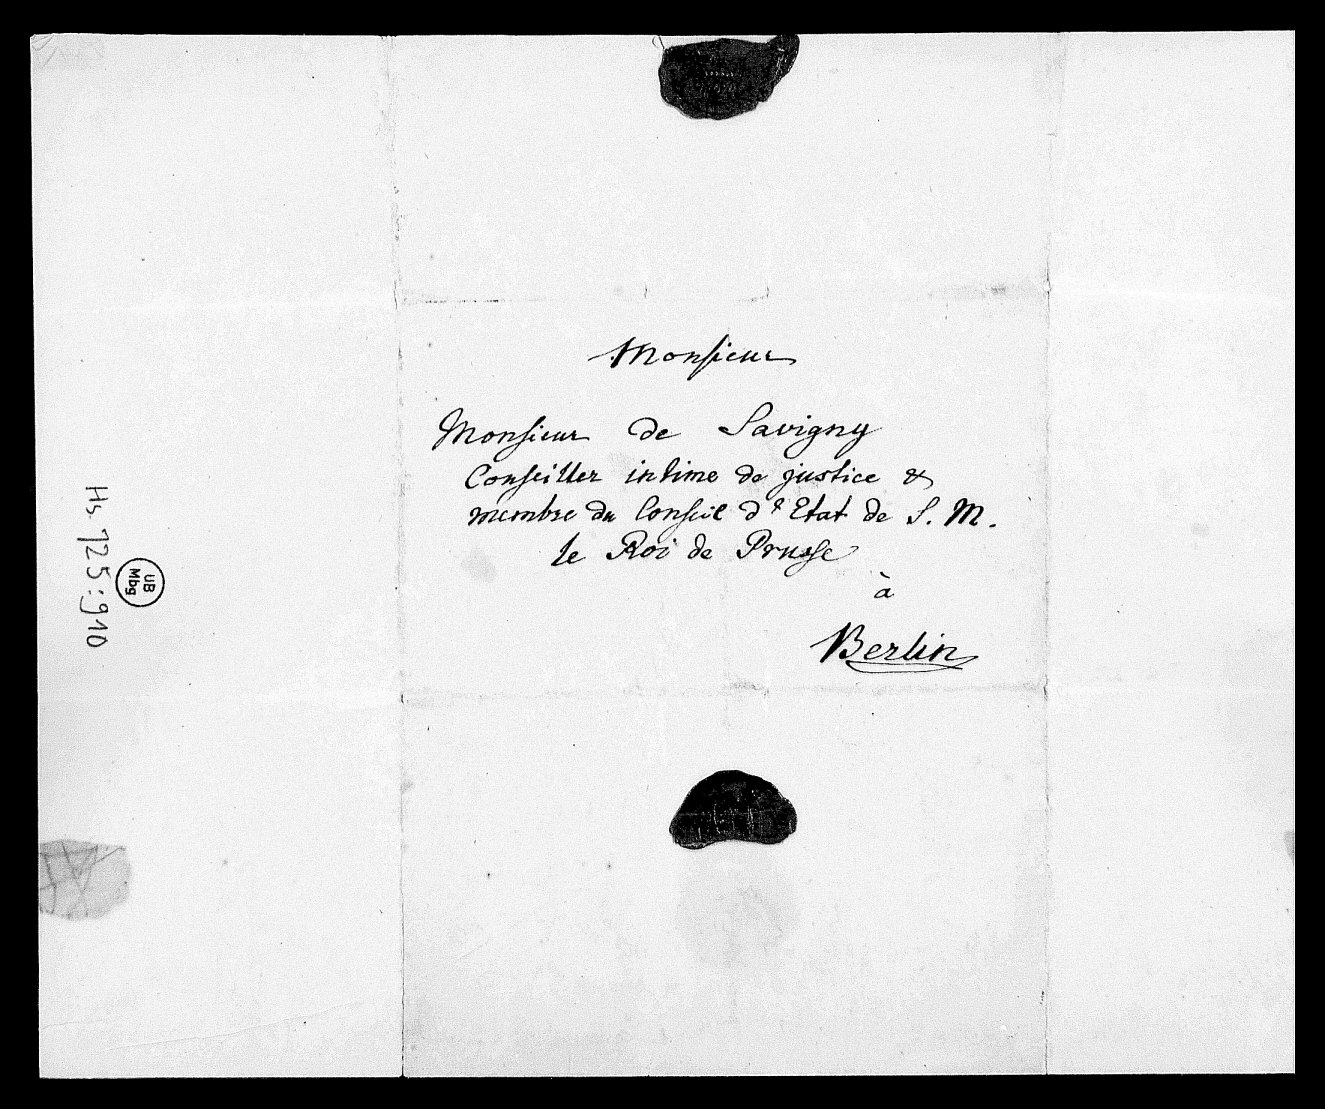 Monsieur
Monsieur de Savigny
Conseiller intime de justice &
membre du Conseil d'Etat de S. M.
le Roi de Prusse
à
Berlin
Hs. 725:910
UB
Mbg